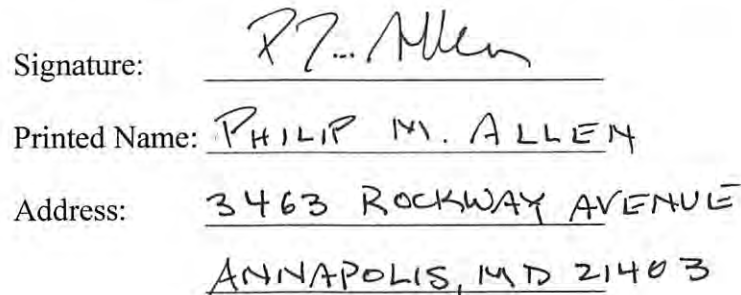 Signature: P M Allen
Printed Name: PHILIP M. ALLEN
Address: 3463 ROCKWAY AVENUE
ANNAPOLIS, MD 21403